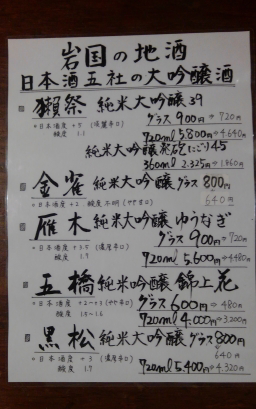 岩国の地酒
日本酒五社の大吟醸酒
獺祭 純米大吟醸39
＊日本酒度 +5 (淡麗辛口) グラス 900円→720円
酸度 1.1 720ml 5.800円→4.640円
純米大吟醸発砲にごり45
360ml 2.325円→1860円
金雀 純米大吟醸 グラス 800円
＊日本酒度 +2 酸度 不明 (やや辛口) 640円
雁木 純米大吟醸 ゆうなぎ
＊日本酒度 +3.5 (濃厚辛口) グラス 900円→720円
酸度 1.7 720ml 5,600円→4480円
五橋 純米大吟醸 錦上花
＊日本酒度 +2~+3 (やや辛口) グラス 600円→480円
酸度 1.5~1.6 720ml 4,000円→3200円
黒松 純米大吟醸 グラス 800円
＊日本酒度 +3 (濃厚辛口) 640円
酸度 1.7 720ml 5,400円→4,320円